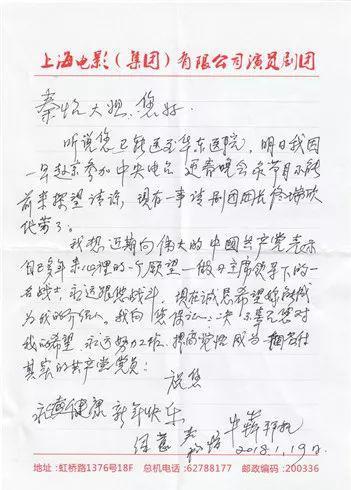 上海电影(集团)有限公司演员剧团
秦怡大姐:您好.
听说您已转送至华东医院,明日我因
一早赴京参加中央电台迎春晚会录节目不能
前来探望请谅,现有一事请剧团团长佟瑞欣
代劳了。
我想近期向伟大的中國共产党表示
自己多年来心裡的一个愿望一做习主席领导下的一
名战士,永远跟您战斗,现在诚恳希望您能成
为我的介绍人。我向您保证,决不辜负您对
我的希望,永远努力工作,提高觉悟成为一个名符
其实的共产党党员!
祝您
永远健康 新年快乐
牛犇拜托
2018.1.19日
地址:虹桥路1376号18F 总机电话:62788177 邮政编码:200336